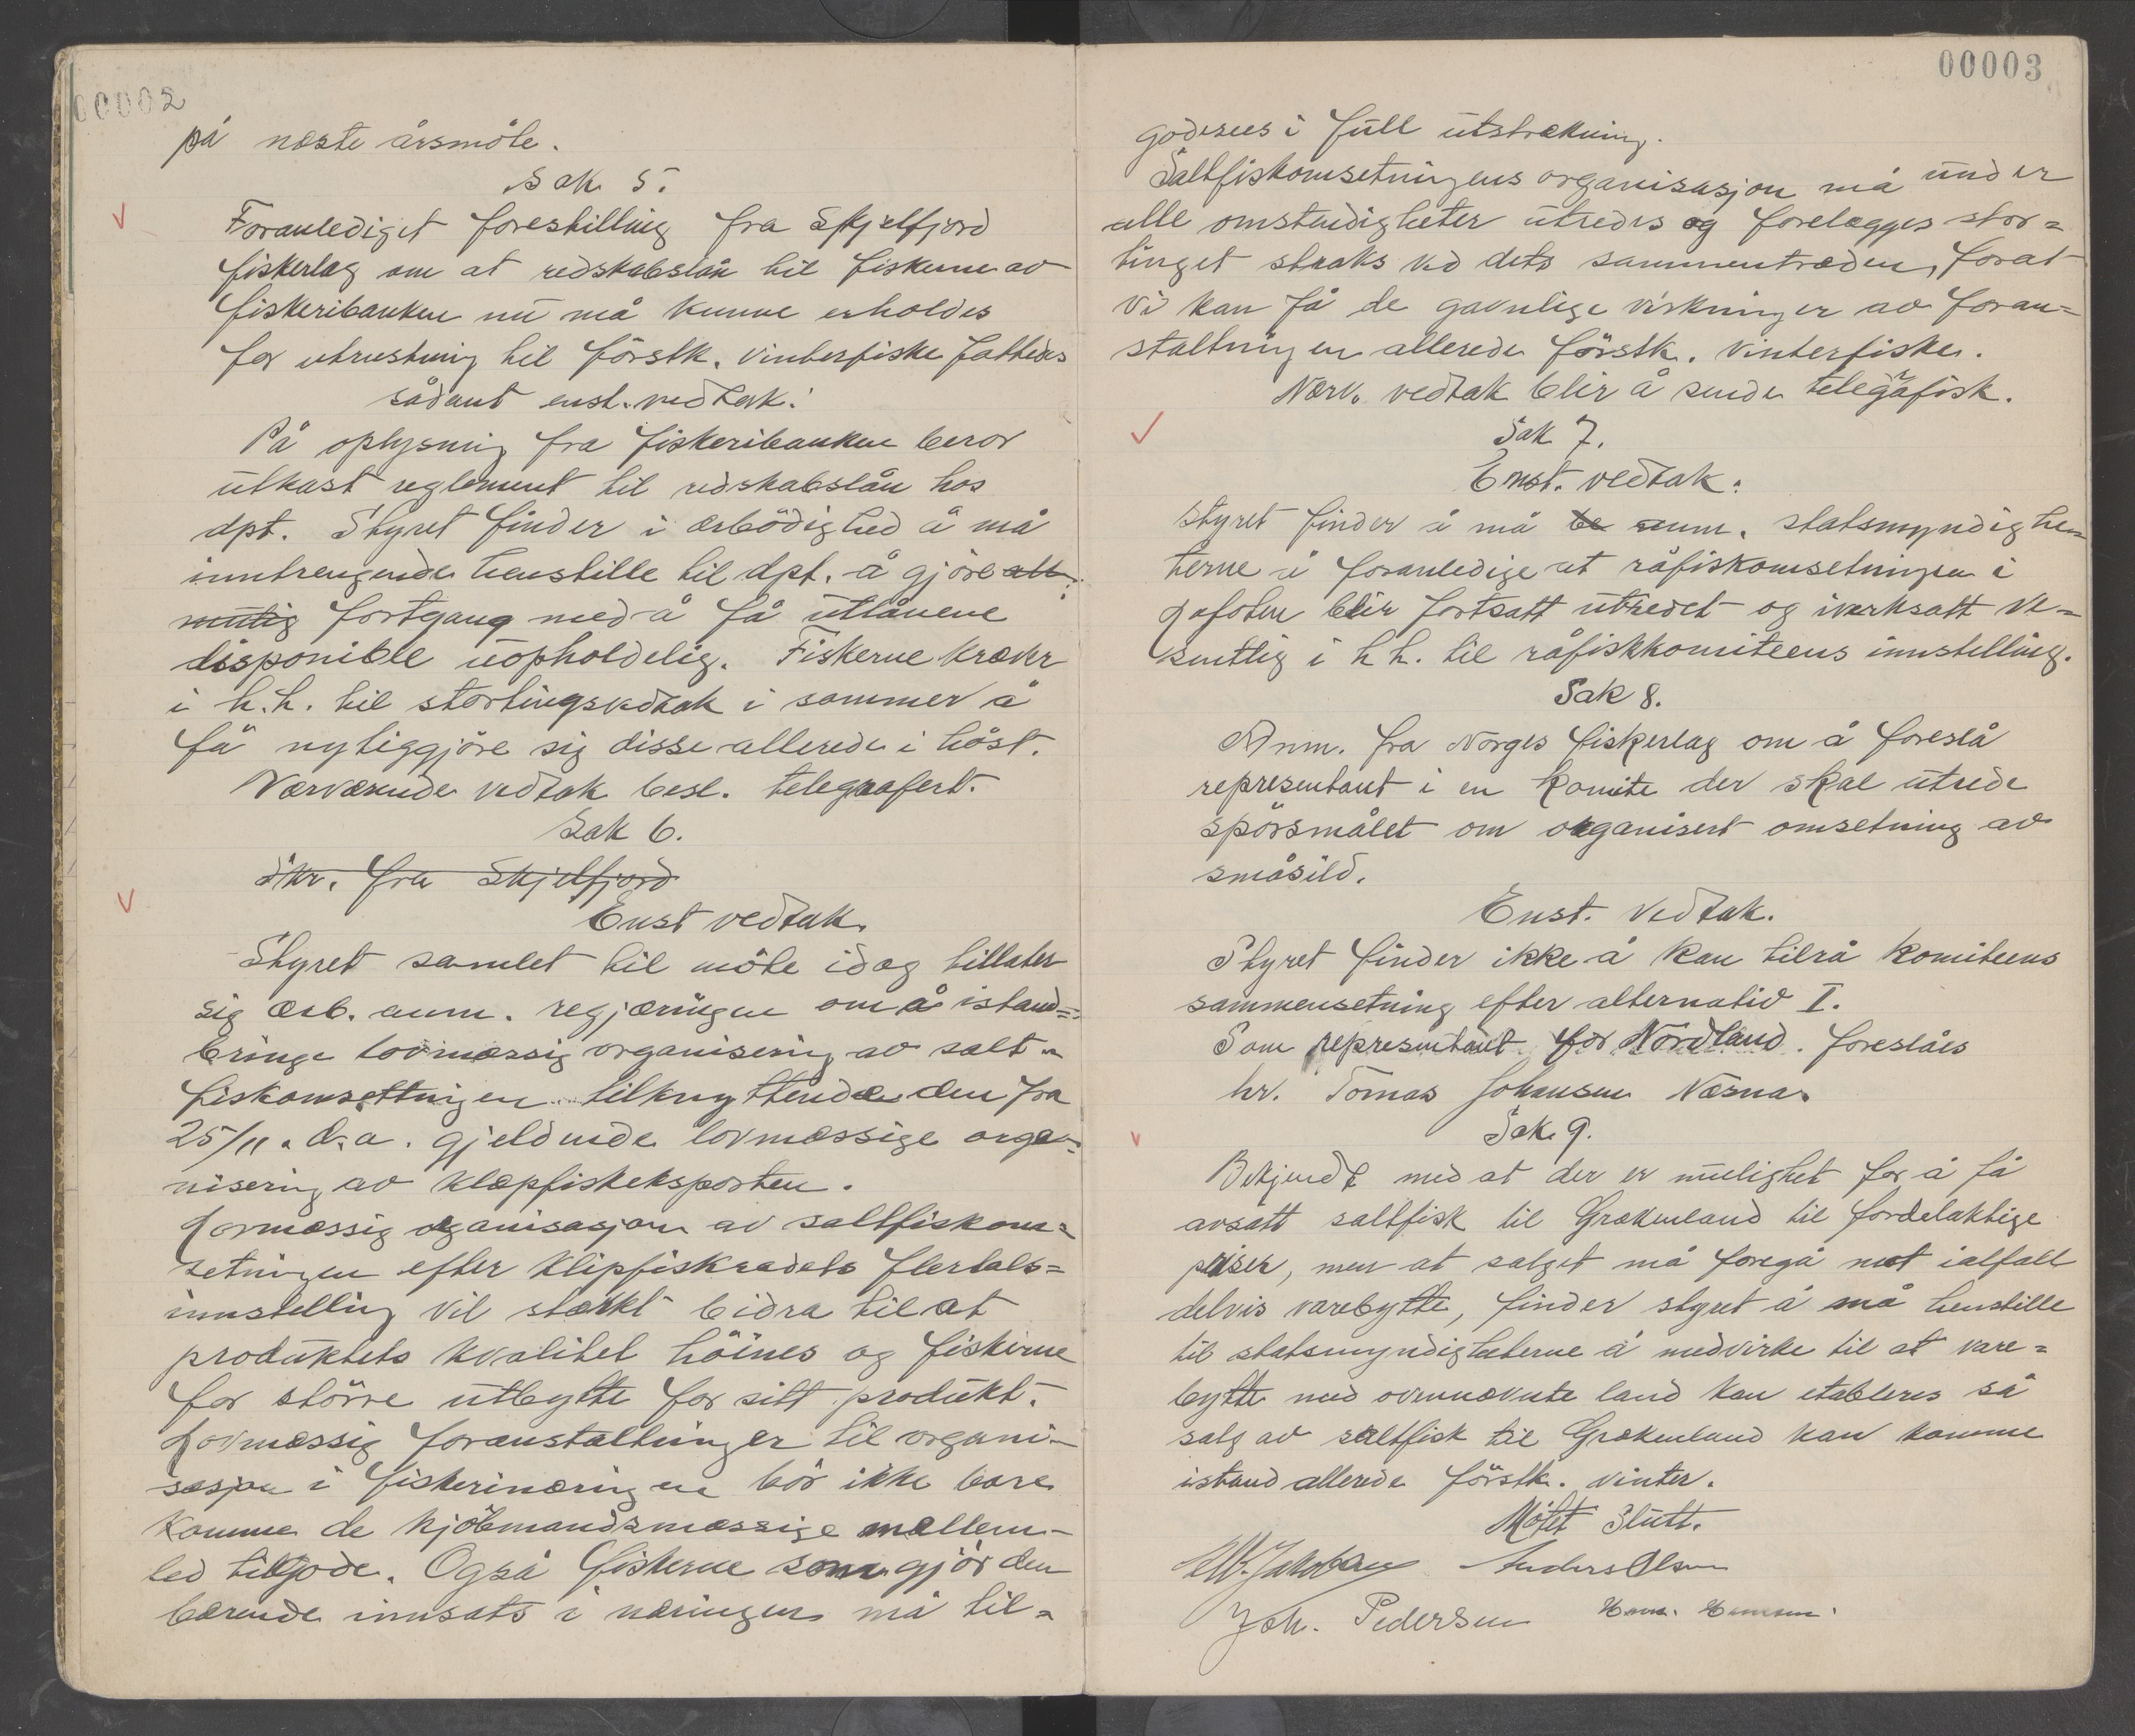 00002
på næste årsmöte.
Sak 5.
Foranlediget forestilling fra Skjelfjord
fiskerlag om at redskabslån til fiskerne av
fiskeribanken nu må kunne erholdes
for utrustning til förstk. vinterfiske fattedes
sådant enst. vedtak:
På oplysning fra fiskeribanken beror
utkast reglement til redskabslån hos
dpt. Styret finder i ærbödighed å må
inntrengende henstille til dpt. å gjöre alt
mulig fortgang med å få utlånene
disponible uopholdelig. Fiskerne kræver
i h.h. til stortingsvedtak i sommer å
få nyttiggjöre sig disse allerede i höst.
Nærværende vedtak besl. telegrafert.
Sak 6.
Skr. fra Skjelfjord
Enst vedtak.
Styret samlet til möte idag tillater
sig ærb. anm. regjæringen om å istand=
bringe lovmæssig organisering av salt=
fiskomsettningen tilknyttende den fra
25/11. d.a. gjeldende lovmæssige orga=
nisering av klepfiskeksporten.
Lovmæssig organisasjon av saltfiskom=
setningen efter klipfiskradets flertals=
innstelling vil stærkt bidra til at
produktets kvalitet höines og fiskerne
for större utbytte for sitt produkt.
Lovmæssig foranstaltninger til organi-
sasjon i fiskerinæringen bör ikke bare
komme de kjöbmandsmæssige mellem-
led tilgode. Også fiskerne som gjör den
bærende innsats i næringen må til=
00003
godesees i full utstrækning.
Saltfiskomsetningens organisasjon må under
alle omstendigheter utredes og forelægges stor=
tinget straks ved dets sammentræden, forat
vi kan få de gavnlige virkninger av foran=
staltningen allerede förstk. vinterfiske.
Nærv. vedtak blir å sende telegrafisk.
Sak 7.
Enst. vedtak:
Styret finder å må be anm. statsmyndighe=
terne å foranledige at råfiskomsetningen i
Lofoten blir fortsatt utredet og iverksatt ve=
sentlig i h h. til råfiskkomiteens innstelling.
Sak 8.
Anm. fra Norges fiskerlag om å foreslå
representant i en komite der skal utrede
spörsmålet om organisert omsetning av
småsild.
Enst. vedtak.
Styret finder ikke å kan tilrå komiteens
sammensetning efter alternativ I.
Som representant for Nordland foreslåes
hr. Tomas Johansen Næsna.
Sak 9.
Bekjendt med at der er mulighet for å få
avsatt saltfisk til Grækenland til fordelaktige
priser, men at salget må foregå mot ialfall
delvis varebytte, finder styret å må henstille
til statsmyndigheterne å medvirke til at vare=
bytte med ovennævnte land kan etableres så
salg av saltfisk til Grækenland kan komme
istand allerede förstk. vinter.
Mötet Slutt.
Jakobsen Anders Olsen
Joh. Pedersen Hans. Hansen.